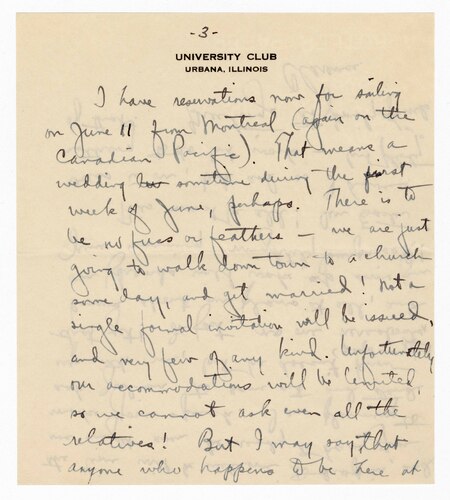 -3-
UNIVERSITY CLUB
URBANA, ILLINOIS
I have reservations now for sailing
on June 11 from Montreal (again on the
Canadian Pacific). That means a
wedding sometime during the first
week of June, perhaps. There is to
be no fuss or feathers – we are just
going to walk down town to a church
some day, and get married! Not a
single formal invitation will be issued,
and very few of any kind. Unfortunately
our accommodations will be limited,
so we cannot ask even all the
relatives! But I may say that
anyone who happens to be here at